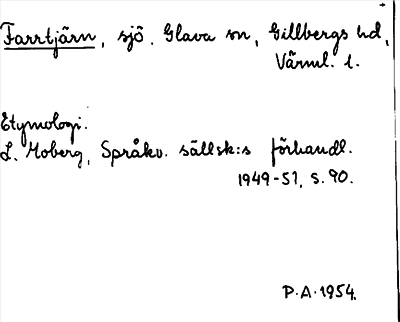 Farrtjärn, sjö. Glava sn, Gillbergs hd,
Värml. l.
Etymologi.
L. Moberg, Språkv. sällsk:s förhandl.
1949-51, s. 90.
P.A. 1954.